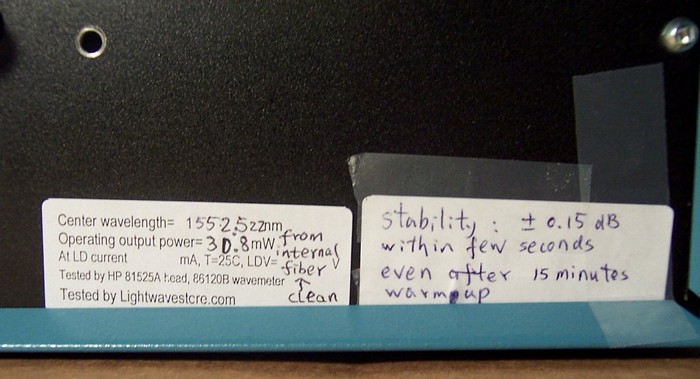 Center wavelength= 1552.522nm
Operating output power= 30.8mW from
At LD current mA, T=25C, LDV= internal V
Tested by HP 81525A head, 86120B wavemeter fiber
Tested by Lightwavestore.com ↑ clean
stability : ± 0.15 dB
within few seconds
even after 15 minutes
warmup